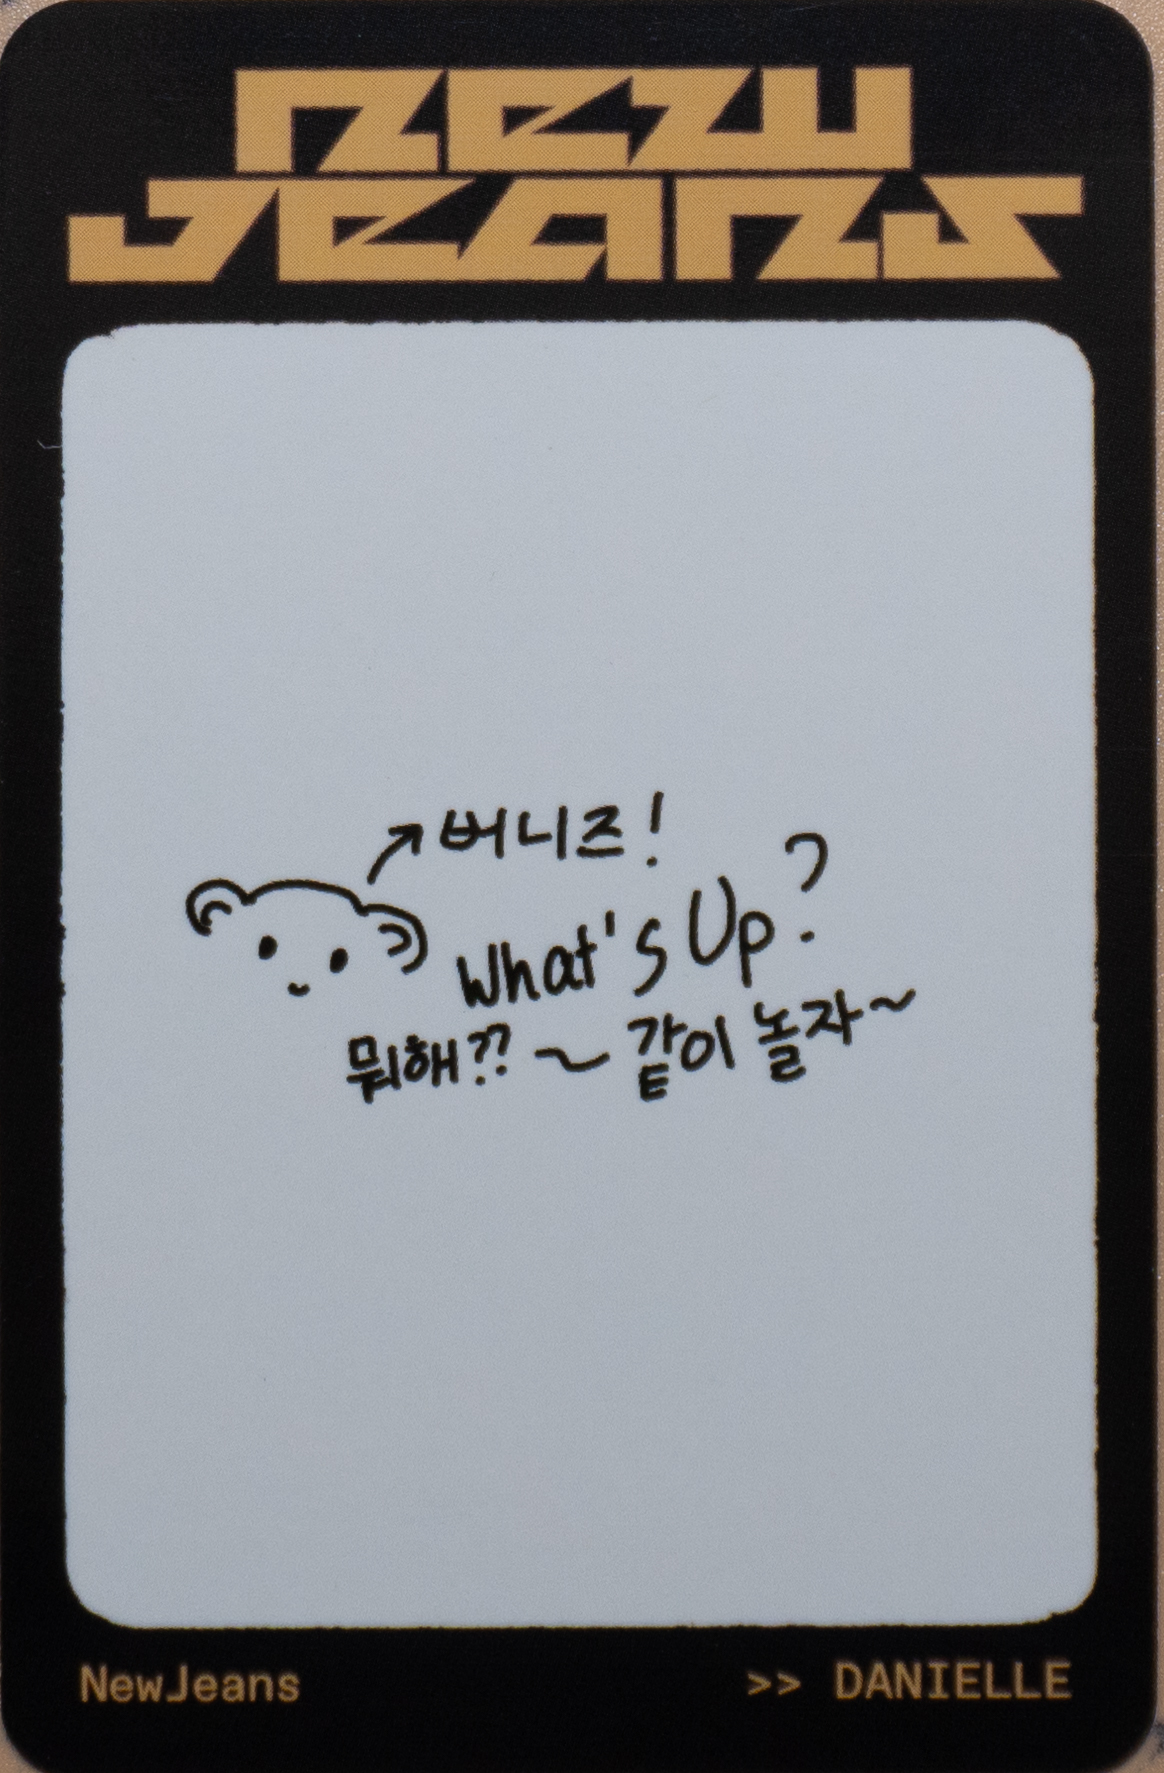 new
jeans
버니즈!
What's Up?
뭐해?? ~ 같이 놀자~
NewJeans
>> DANIELLE